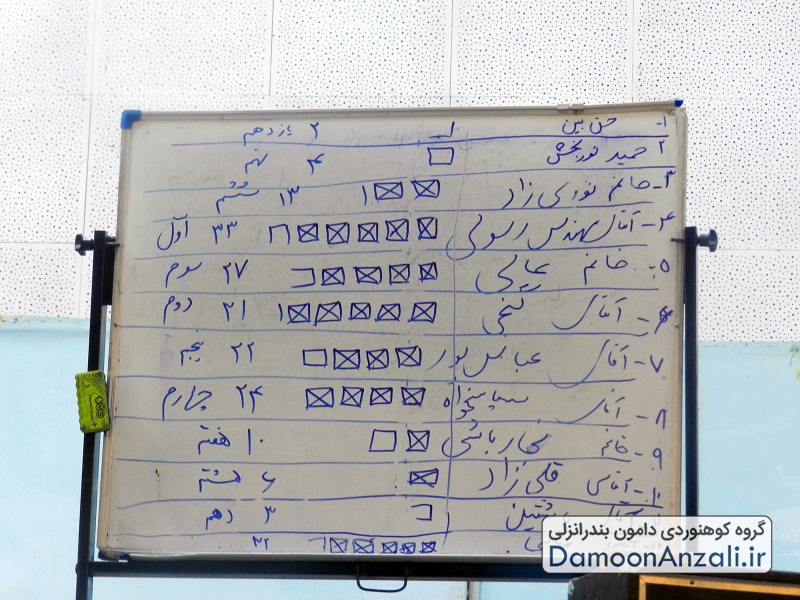 ۱- حسن بین ۲ یازدهم
۲ حمید نوربخش ۴ نهم
۳- خانم نوری زاد ۱۳ ششم
۴- آقای مهندس رسولی ۳۳ اول
۵- خانم ۲۷ سوم
۶- آقای ۳۱ دوم
۷- آقای عباس پور ۲۲ پنجم
۸- آقای سپاسخواه ۲۴ چهارم
۹- خانم ۱۰ هفتم
۱۰- آقای قلی زاد ۶ هشتم
۳ دهم
۳۲
گروه کوهنوردی دامون بندرانزلی
DamoonAnzali.ir